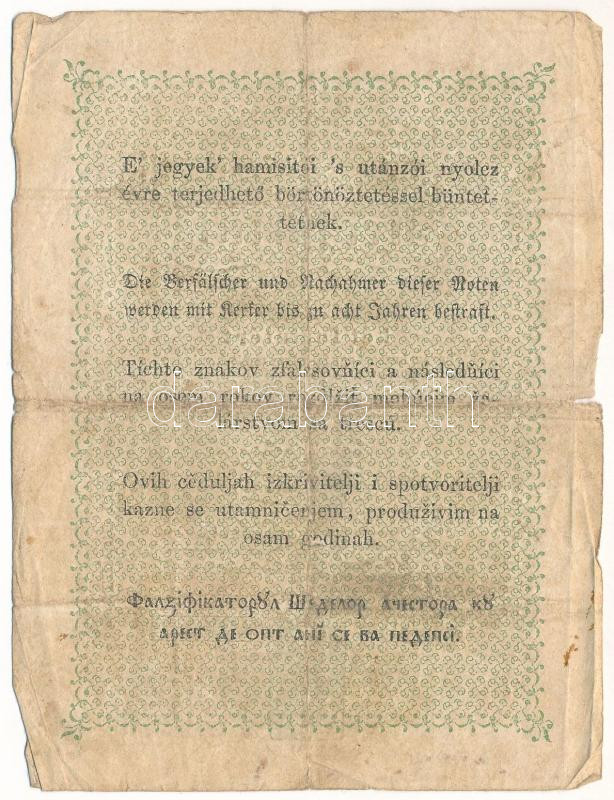 E' jegyek' hamisitoi 's utánzói nyolcz
évre terjedhető börtönöztetéssel büntet-
tetnek.
Die Verfälscher und Nachahmer dieser Noten
werden mit Kerker bis zu acht Jahren bestraft.
Tíchto znakov zfalšovňíci a následňíci
na osem rokov
lárstvom sa trescú.
Ovih cěduljah izkrivitelji i spotvoritelji
kazne se utamničenjem, produživim na
osam godinah.
Фалзіфікаторꙋл Шеделор ачестора кꙋ
арест де опт анї се ва педепсі.
darabanth